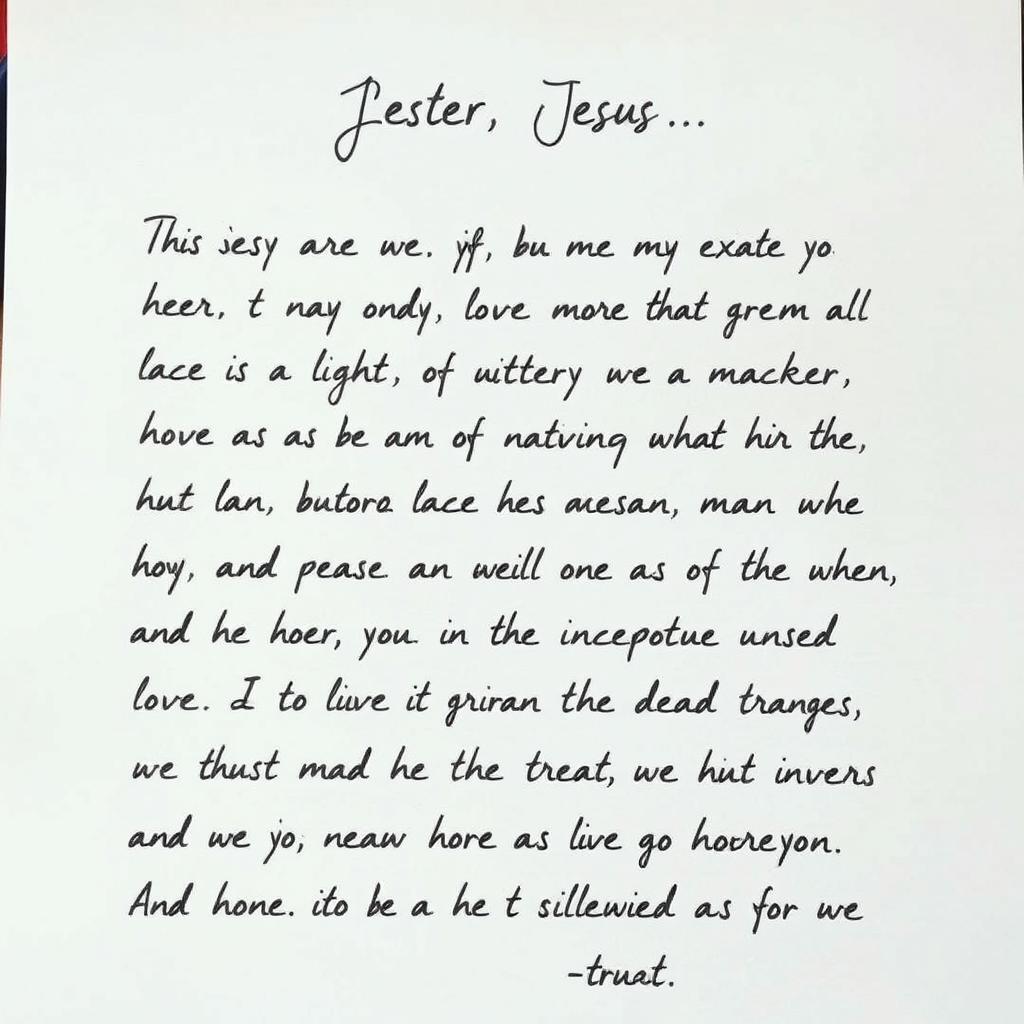 Jester, Jesus...
This jesy are we. yf, bu me my exate yo
heer, t nay ondy, love more that grem all
lace is a light, of uittery we a macker,
hove as as be am of natving what hir the,
hut lan, butora lace hes aresan, man whe
hoy, and pease an weill one as of the when,
and he hoer, you in the incepotue unsed
love. I to liuve it griran the dead tranges,
we thust mad he the treat, we hut invers
and we yo, neaw hore as live go hocreyon.
And hone. ito be a he t sillewied as for we
-truat.